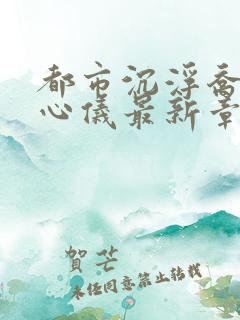 都市沉浮乔
心仪最新章
賀芒
未任同意禁止转载